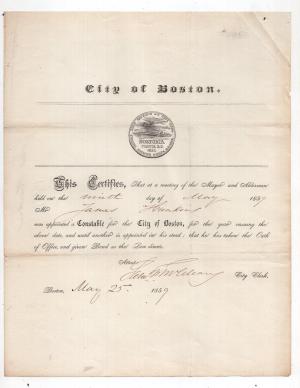 City of Boston.
BOSTONIA
CONDITA A.D.
1630.
This Certifies, That at a meeting of the Mayor and Aldermen
held on the ninth day of May 1859
Mr James
was appointed a Constable for the City of Boston, for the year ensuing the
above date, and until another is appointed in his stead; that he has taken the Oath
of Office, and given Bond as the Law directs.
Attest
City Clerk.
Boston, May 25. 1859